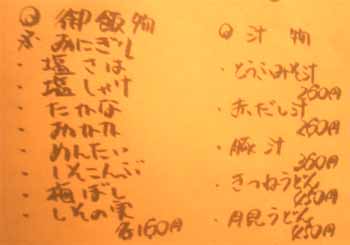 ◎ 御飯物
おにぎり
・塩さば
・塩しゃけ
・たかな
・おかか
・めんたい
・しそこんぶ
・梅ぼし
・しその実
各160円
◎ 汁物
・とうふみそ汁
260円
・赤だし汁
260円
・豚汁
360円
・きつねうどん
450円
・月見うどん
450円